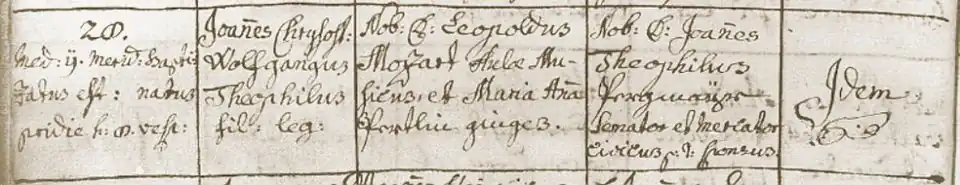 28.
med: ij. merid: Baptizatus est: natus
pridie h: 8. vesp:
Joañes Chrysost:
Wolfgangus
Theophilus
fil: leg:
Nob: D: Leopoldus
Mozart Aulæ Mu-
sicus, et Maria Aña
Pertlin giuges.
Nob: D: Joañes
Theophilus
Pergmayr
Senator et Mercator
civicus p: t: sponsus.
Idem